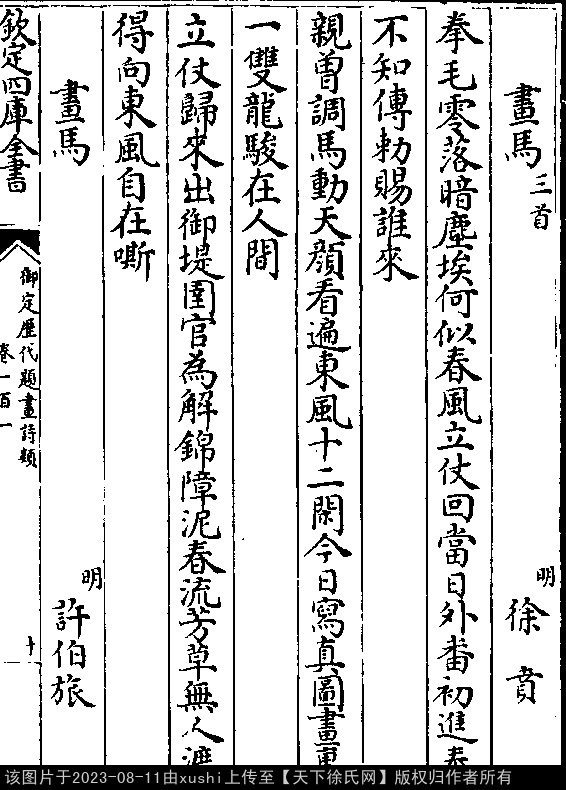 畫馬三首 明 徐賁
拳毛零落暗塵埃何似春風立仗回當日外番初進
不知傳勅賜誰來
親曽調馬動天顔看遍東風十二閑今日寫真圖畫
一雙龍駿在人間
立仗歸來出御堤圉官為解錦障泥春流芳草無人
得向東風自在嘶
畫馬 明 許伯旅
欽定四庫全書
御定歴代題畫詩類
卷一百一
十
该图片于2023-08-11由xushi上传至【天下徐氏网】版权归作者所有